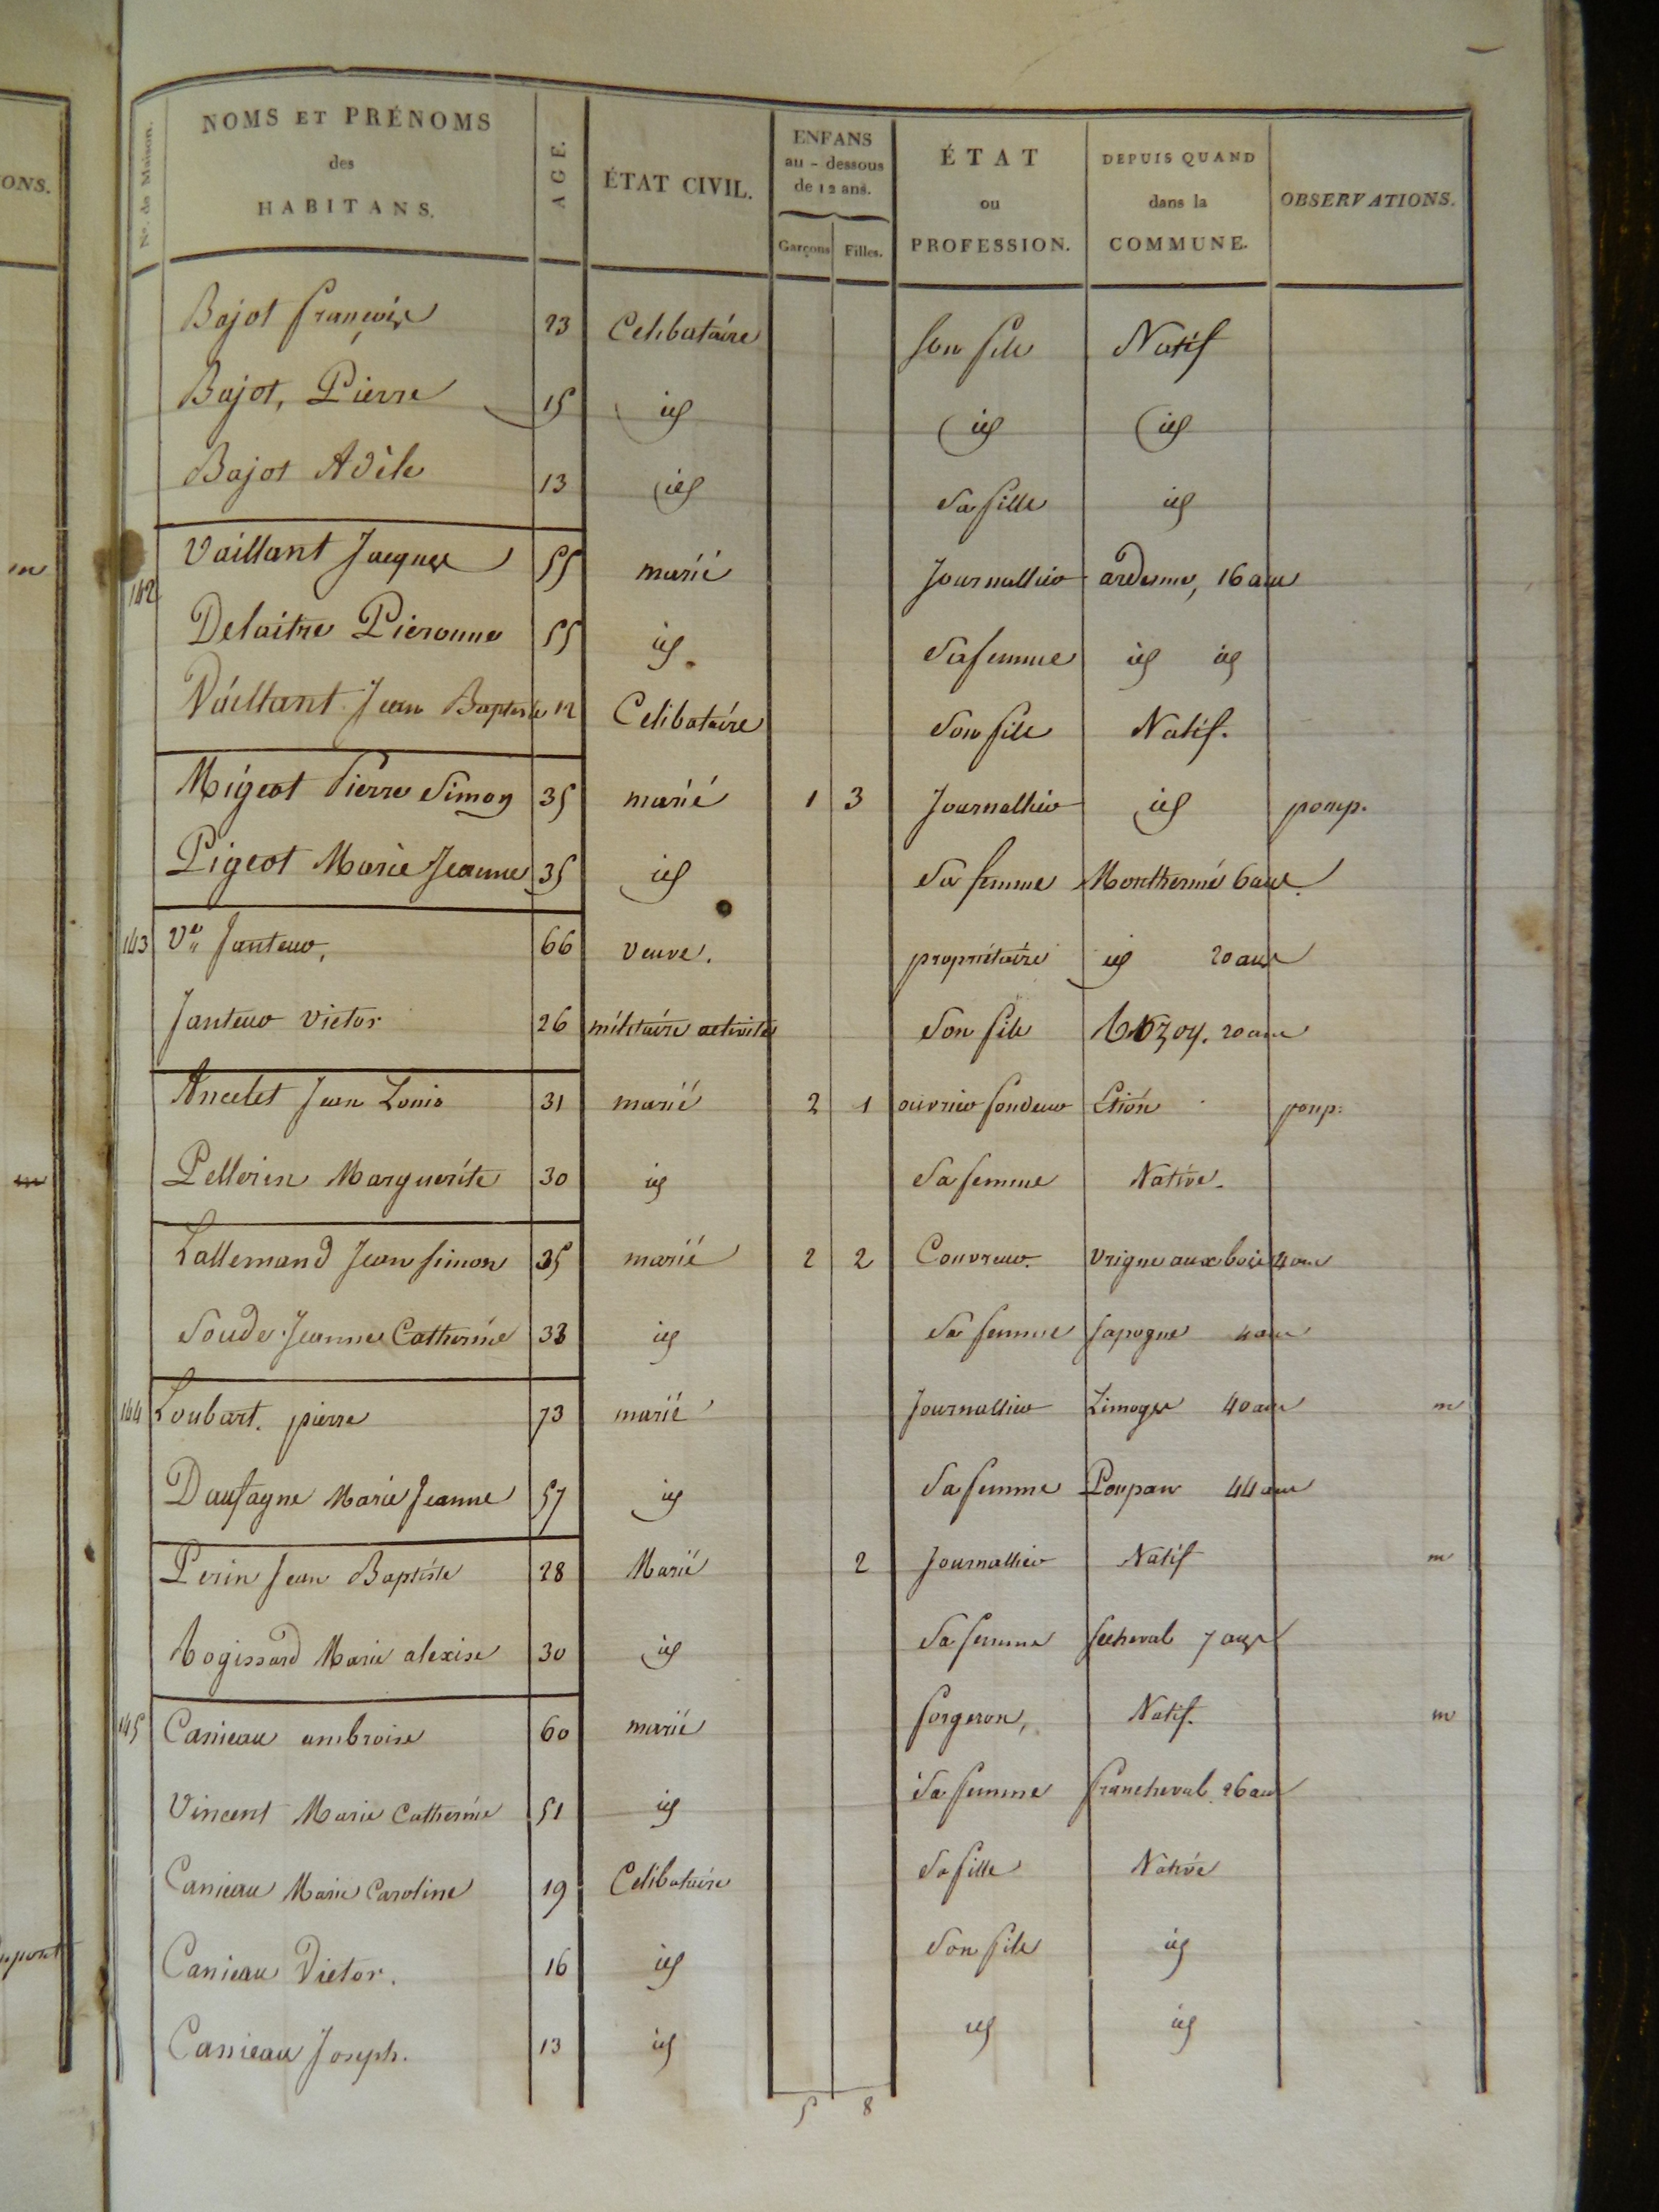 ONS.
No. de Maison.
NOMS ET PRÉNOMS
des
HABITANS.
AGE.
ÉTAT CIVIL.
ENFANS
au-dessous
de 12 ans.
Garçons Filles.
ÉTAT
ou
PROFESSION.
DEPUIS QUAND
dans la
COMMUNE.
OBSERVATIONS.
Bajot françois 23 Celibataire son fils Natif
Bajot, Pierre 15 id id id
Bajot Adèle 13 id Sa fille id
142 Vaillant Jacques 55 marié Journallier ardenne, 16 ans
Delaitre Pieronne 55 id. Sa femme id id
Vaillant Jean Baptiste 12 Celibataire Son fils Natif.
Migeot Pierre Simon 35 marié 1 3 Journallier id pomp.
Pigeot Marie Jeanne 35 id Sa femme Monthermé 6 ans.
143 Ve Janteur, 66 veuve. propriétaire id 20 ans
Janteur victor 26 militaire activité Son fils 20 ans
Ancelet Jean Louis 31 marié 2 1 ouvrier fondeur Etion pomp.
Pellerin Marguerite 30 id Sa femme Native.
Lallemand Jean simon 35 marié 2 2 Couvreur. Vrigne aux bois 4 ans
Soude Jeanne Catherine 33 id Sa femme sapogne 4 ans
144 Loubart. pierre 73 marié Journallier Limoges 40 ans m
Daufagne Marie Jeanne 57 id Sa femme Poupan 44 ans
Perin Jean Baptiste 28 Marié 2 Journallier Natif m
Rogissard Marie alexise 30 id Sa femme secheval 7 ans
145 Canieau ambroise 60 marié forgeron, Natif. m
Vincent Marie Catherine 51 id Sa femme francheval 26 ans
Canieau Marie Caroline 19 Celibataire Sa fille Native
Canieau Victor. 16 id Son fils id
Canieau Joseph. 13 id id id
5 8